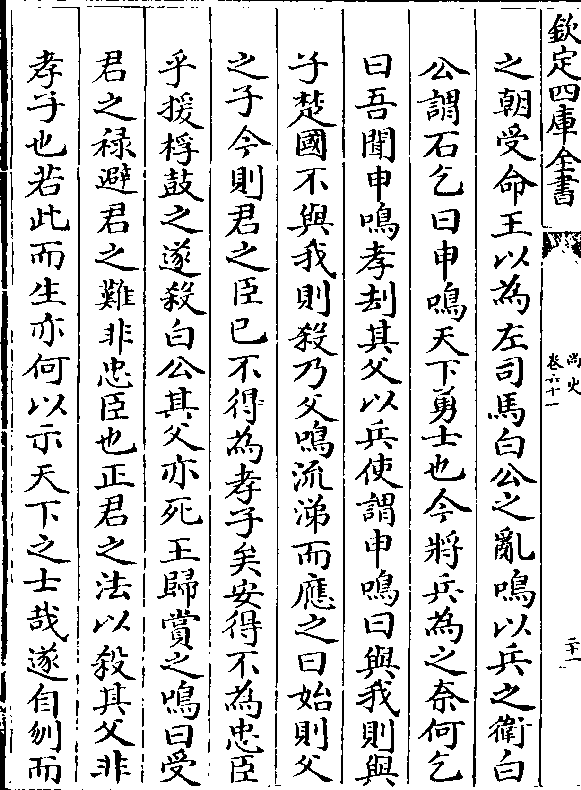 欽定四庫全書
尚史
卷六十一
二十一
之朝受命王以為左司馬白公之亂鳴以兵之衛白
公謂石乞曰申鳴天下勇士也今將兵為之奈何乞
曰吾聞申鳴孝刦其父以兵使謂申鳴曰與我則與
子楚國不與我則殺乃父鳴流涕而應之曰始則父
之子今則君之臣已不得為孝子矣安得不為忠臣
乎援桴鼓之遂殺白公其父亦死王歸賞之鳴曰受
君之祿避君之難非忠臣也正君之法以殺其父非
孝子也若此而生亦何以示天下之士哉遂自刎而